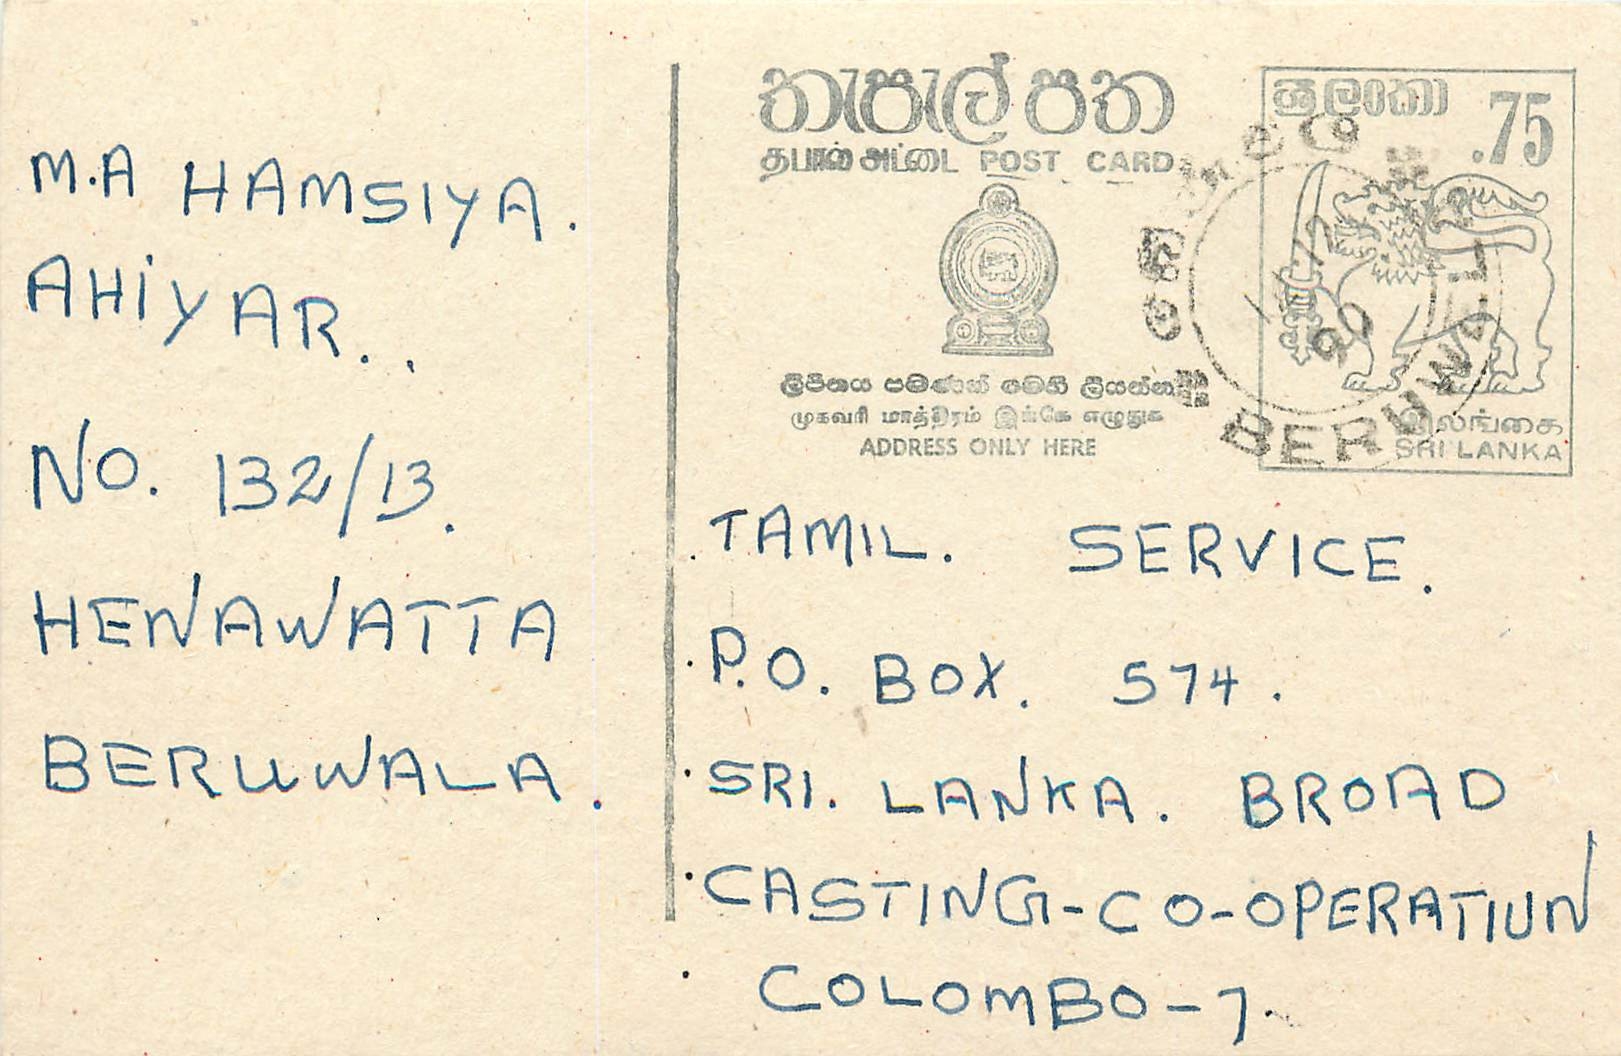 M.A HAMSIYA.
AHiYAR..
NO. 132/13.
HENAWATTA
BERUWALA.
තැපැල් පත
தபால் அட்டை POST CARD
ලිපිනය පමණක් මෙහි ලියන්න
முகவரி மாத்திரம் இங்கே எழுதுக
ADDRESS ONLY HERE
ශ්‍රී ලංකා .75
இலங்கை
SRI LANKA
90
.TAMIL. SERVICE.
.P.O. BOX. 574.
.SRI. LANKA. BROAD
.CASTING-CO-OPERATIUN
. COLOMBO-7.